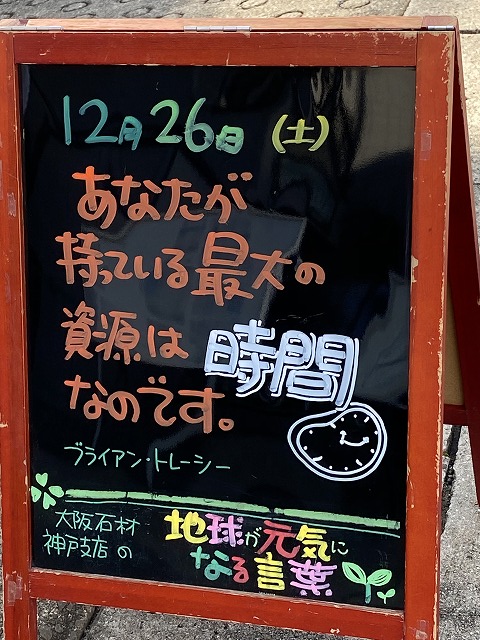 12月26日(土)
あなたが
持っている最大の
資源は時間
なのです。
ブライアン・トレーシー
大阪石材
神戸支店の
地球が元気に
なる言葉